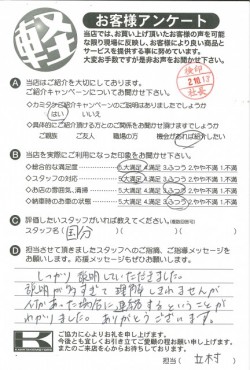 軽
お客様アンケート
当店では、お買い上げ頂いたお客様の声を可能
な限り現場に反映し、お客様により良い商品と
サービスを提供する事に努めております。
大変お手数ですが是非お声をお聞かせ下さい。
検印
2.10.17
社長
A 当店はご紹介を大切にしております。
ご紹介キャンペーンについてお聞かせ下さい。
◇カミタケご紹介キャンペーンのご説明はありましたでしょうか
はい いいえ
◇具体的にご紹介頂ける方とのご関係をお聞かせ頂けますでしょうか
ご親族 ご友人 職場の方 機会があれば紹介したい
B 当店を実際にご利用になった印象をお聞かせ下さい。
◇総合的な満足度 5.大満足 4.満足 3.ふつう 2.やや不満 1.不満
◇スタッフの対応 5.大満足 4.満足 3.ふつう 2.やや不満 1.不満
◇お店の雰囲気、清掃 5.大満足 4.満足 3.ふつう 2.やや不満 1.不満
◇納車時のお車の状態 5.大満足 4.満足 3.ふつう 2.やや不満 1.不満
C 評価したいスタッフがいれば教えてください。(複数回答可)
スタッフ名( 国分 )
D 担当させて頂きましたスタッフへのご指摘、ご応援メッセージを
お願いします。応援メッセージもぜひお願いします!
しっかり説明していただきました。
説明が多すぎて理解しきれませんが
何かあった場合に連絡するということが
わかりました。ありがとうございます。
K
ご協力に心よりお礼を申し上げます。
今後とも宜しくお引き立てご愛顧の程お願い申し上げます。
またのご来店を心からお待ちしております。
担当( 立村 )